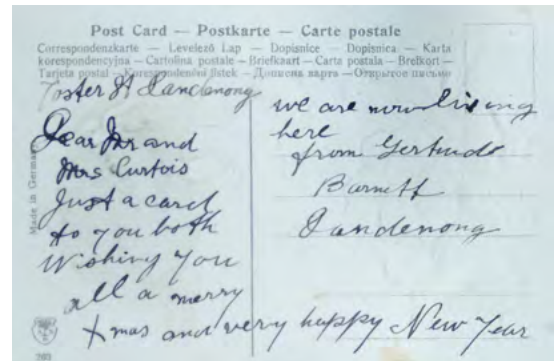 Post Card — Postkarte — Carte postale
Correspondenzkarte — Levelező Lap — Dopisnice — Dopisnica — Karta
korespondencyjna — Cartolina postale — Briefkaart — Carta postala — Brefkort —
Tarjeta postal — Korespondenční lístek — Дописна карта — Открытое письмо
Foster St Dandenong
Dear Mr and
Mrs Curtois
Just a card
to you both
Wishing you
all a merry
Xmas and very happy New Year
we are now living
here
from Gertrude
Barnett
Dandenong
Made in Germany
203